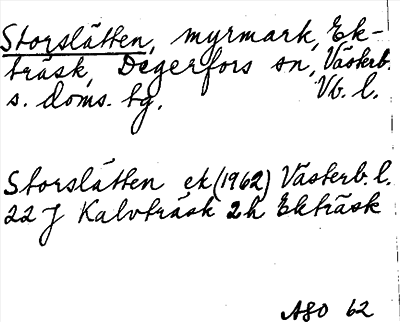 Storslåtten, myrmark, Ek-
träsk, Degerfors sn, Västerb.
s. doms. tg. Vb. l.
Storslåtten ek (1962) Västerb. l.
22 J Kalvträsk 2h Ekträsk
ASO 62